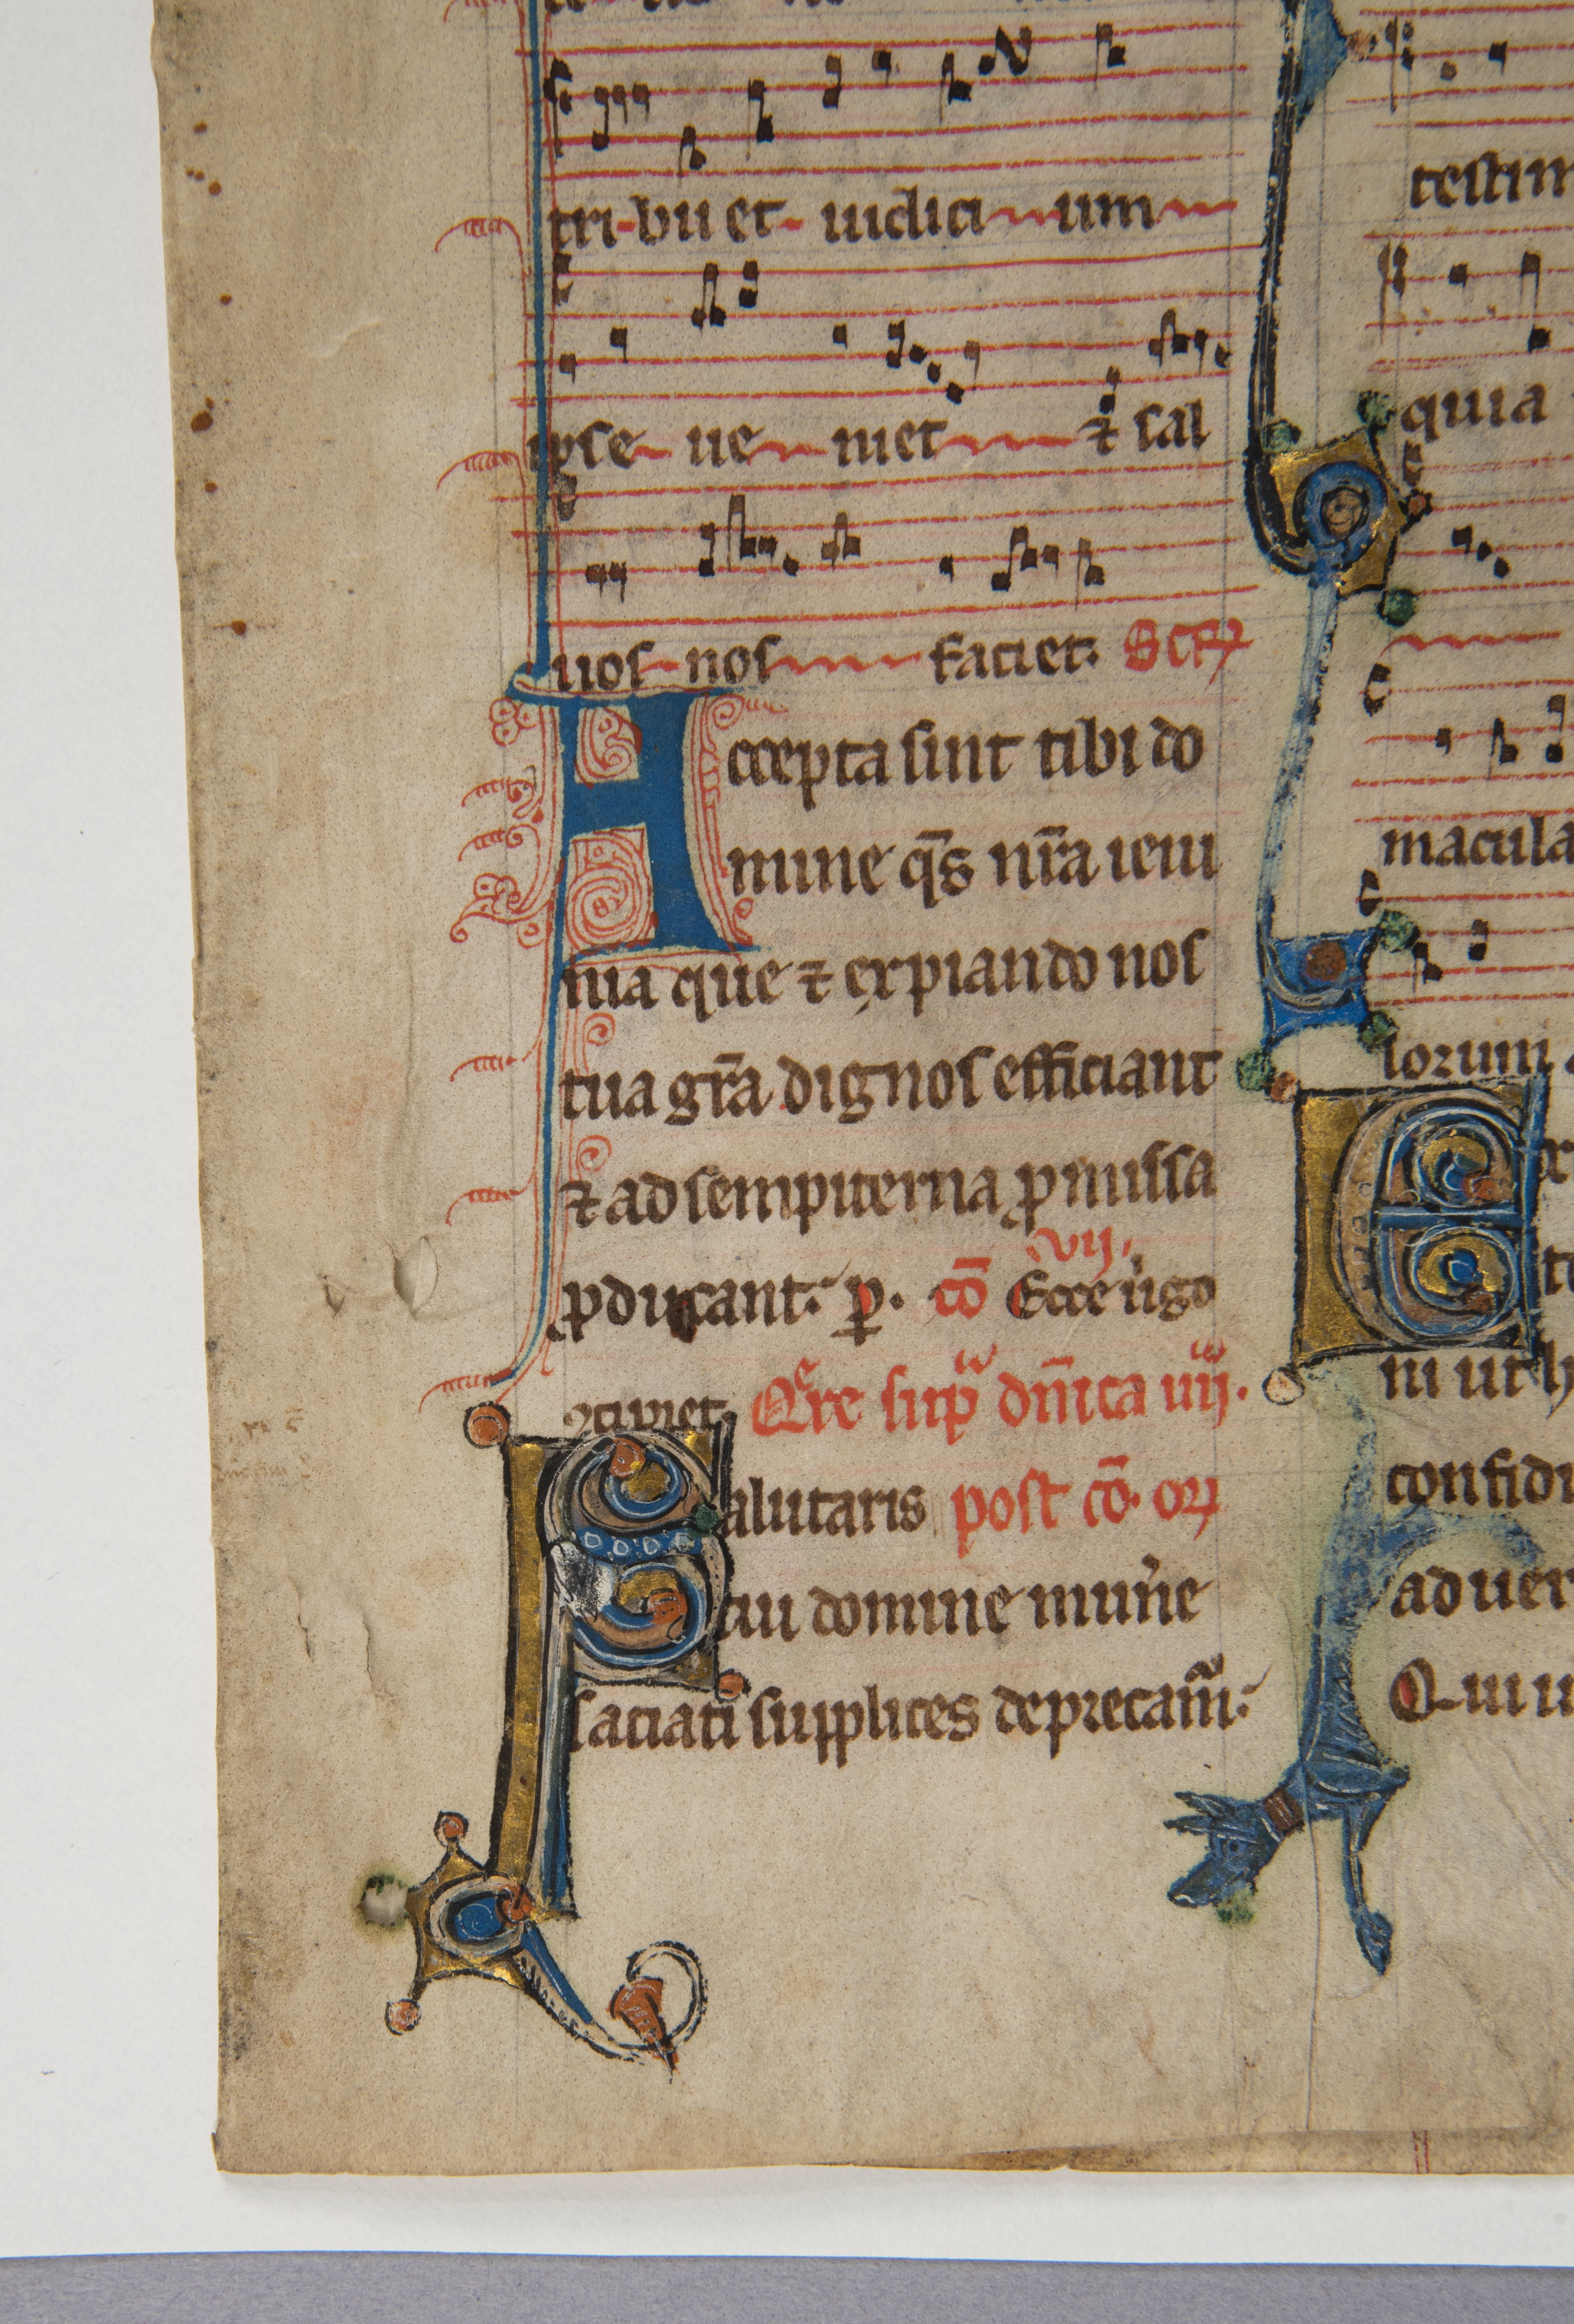 tri-bu et- iudici um
ipse ue niet ⁊ sal
uos nos faciet. Secr̃
Accepta sint tibi do
mine q̄s nr̄a ieiu
nia que ⁊ expiando nos
tua gr̄a dignos efficiant
⁊ ad sempiterna ꝓmissa
vij
ꝓducant. ꝑ. cō Ecce uͥgo
ꝯcipiet. Qͤre supͣ dn̄ica iiij.
alutaris post cō. or̃
S tui domine munͥe
saciati supplices deprecam̃.
testim
quia
macula
lorum
ni ut h
confidi
ad uer
Qui u